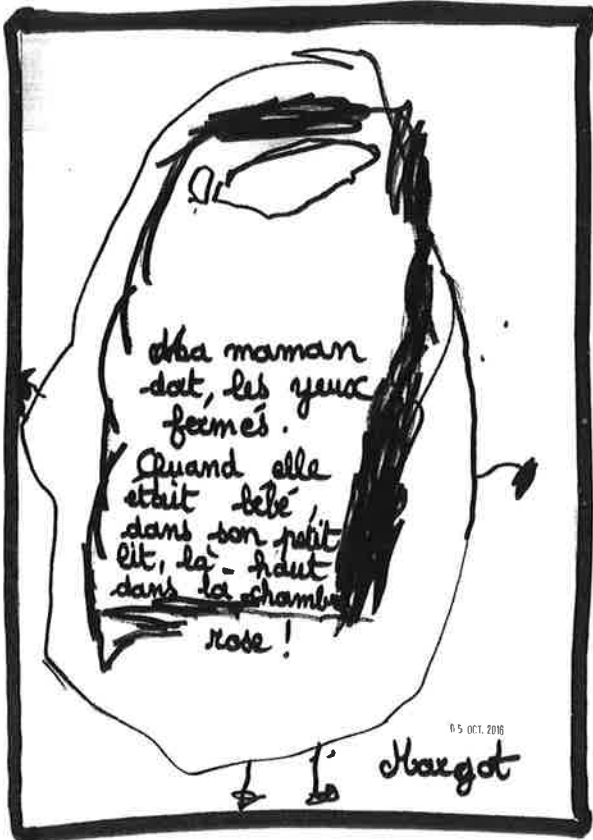 Ma maman
dort, les yeux
fermés.
Quand elle
était bébé,
dans son petit
lit, là-haut
dans la chambre
rose !
05 OCT. 2016
Margot